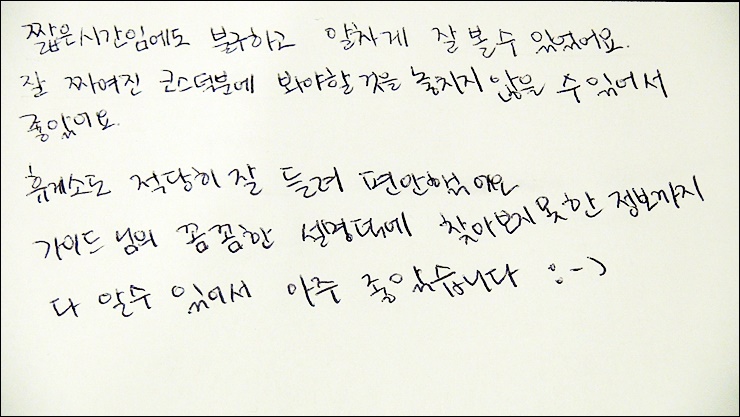 짧은시간임에도 불구하고 알차게 잘 볼 수 있었어요.
잘 짜여진 코스덕분에 봐야할 것을 놓치지 않을 수 있어서
좋았어요.
휴게소도 적당히 잘 들려 편안했어요
가이드님의 꼼꼼한 설명덕에 찾아보지 못한 정보까지
다 알수 있어서 아주 좋았습니다 :-)